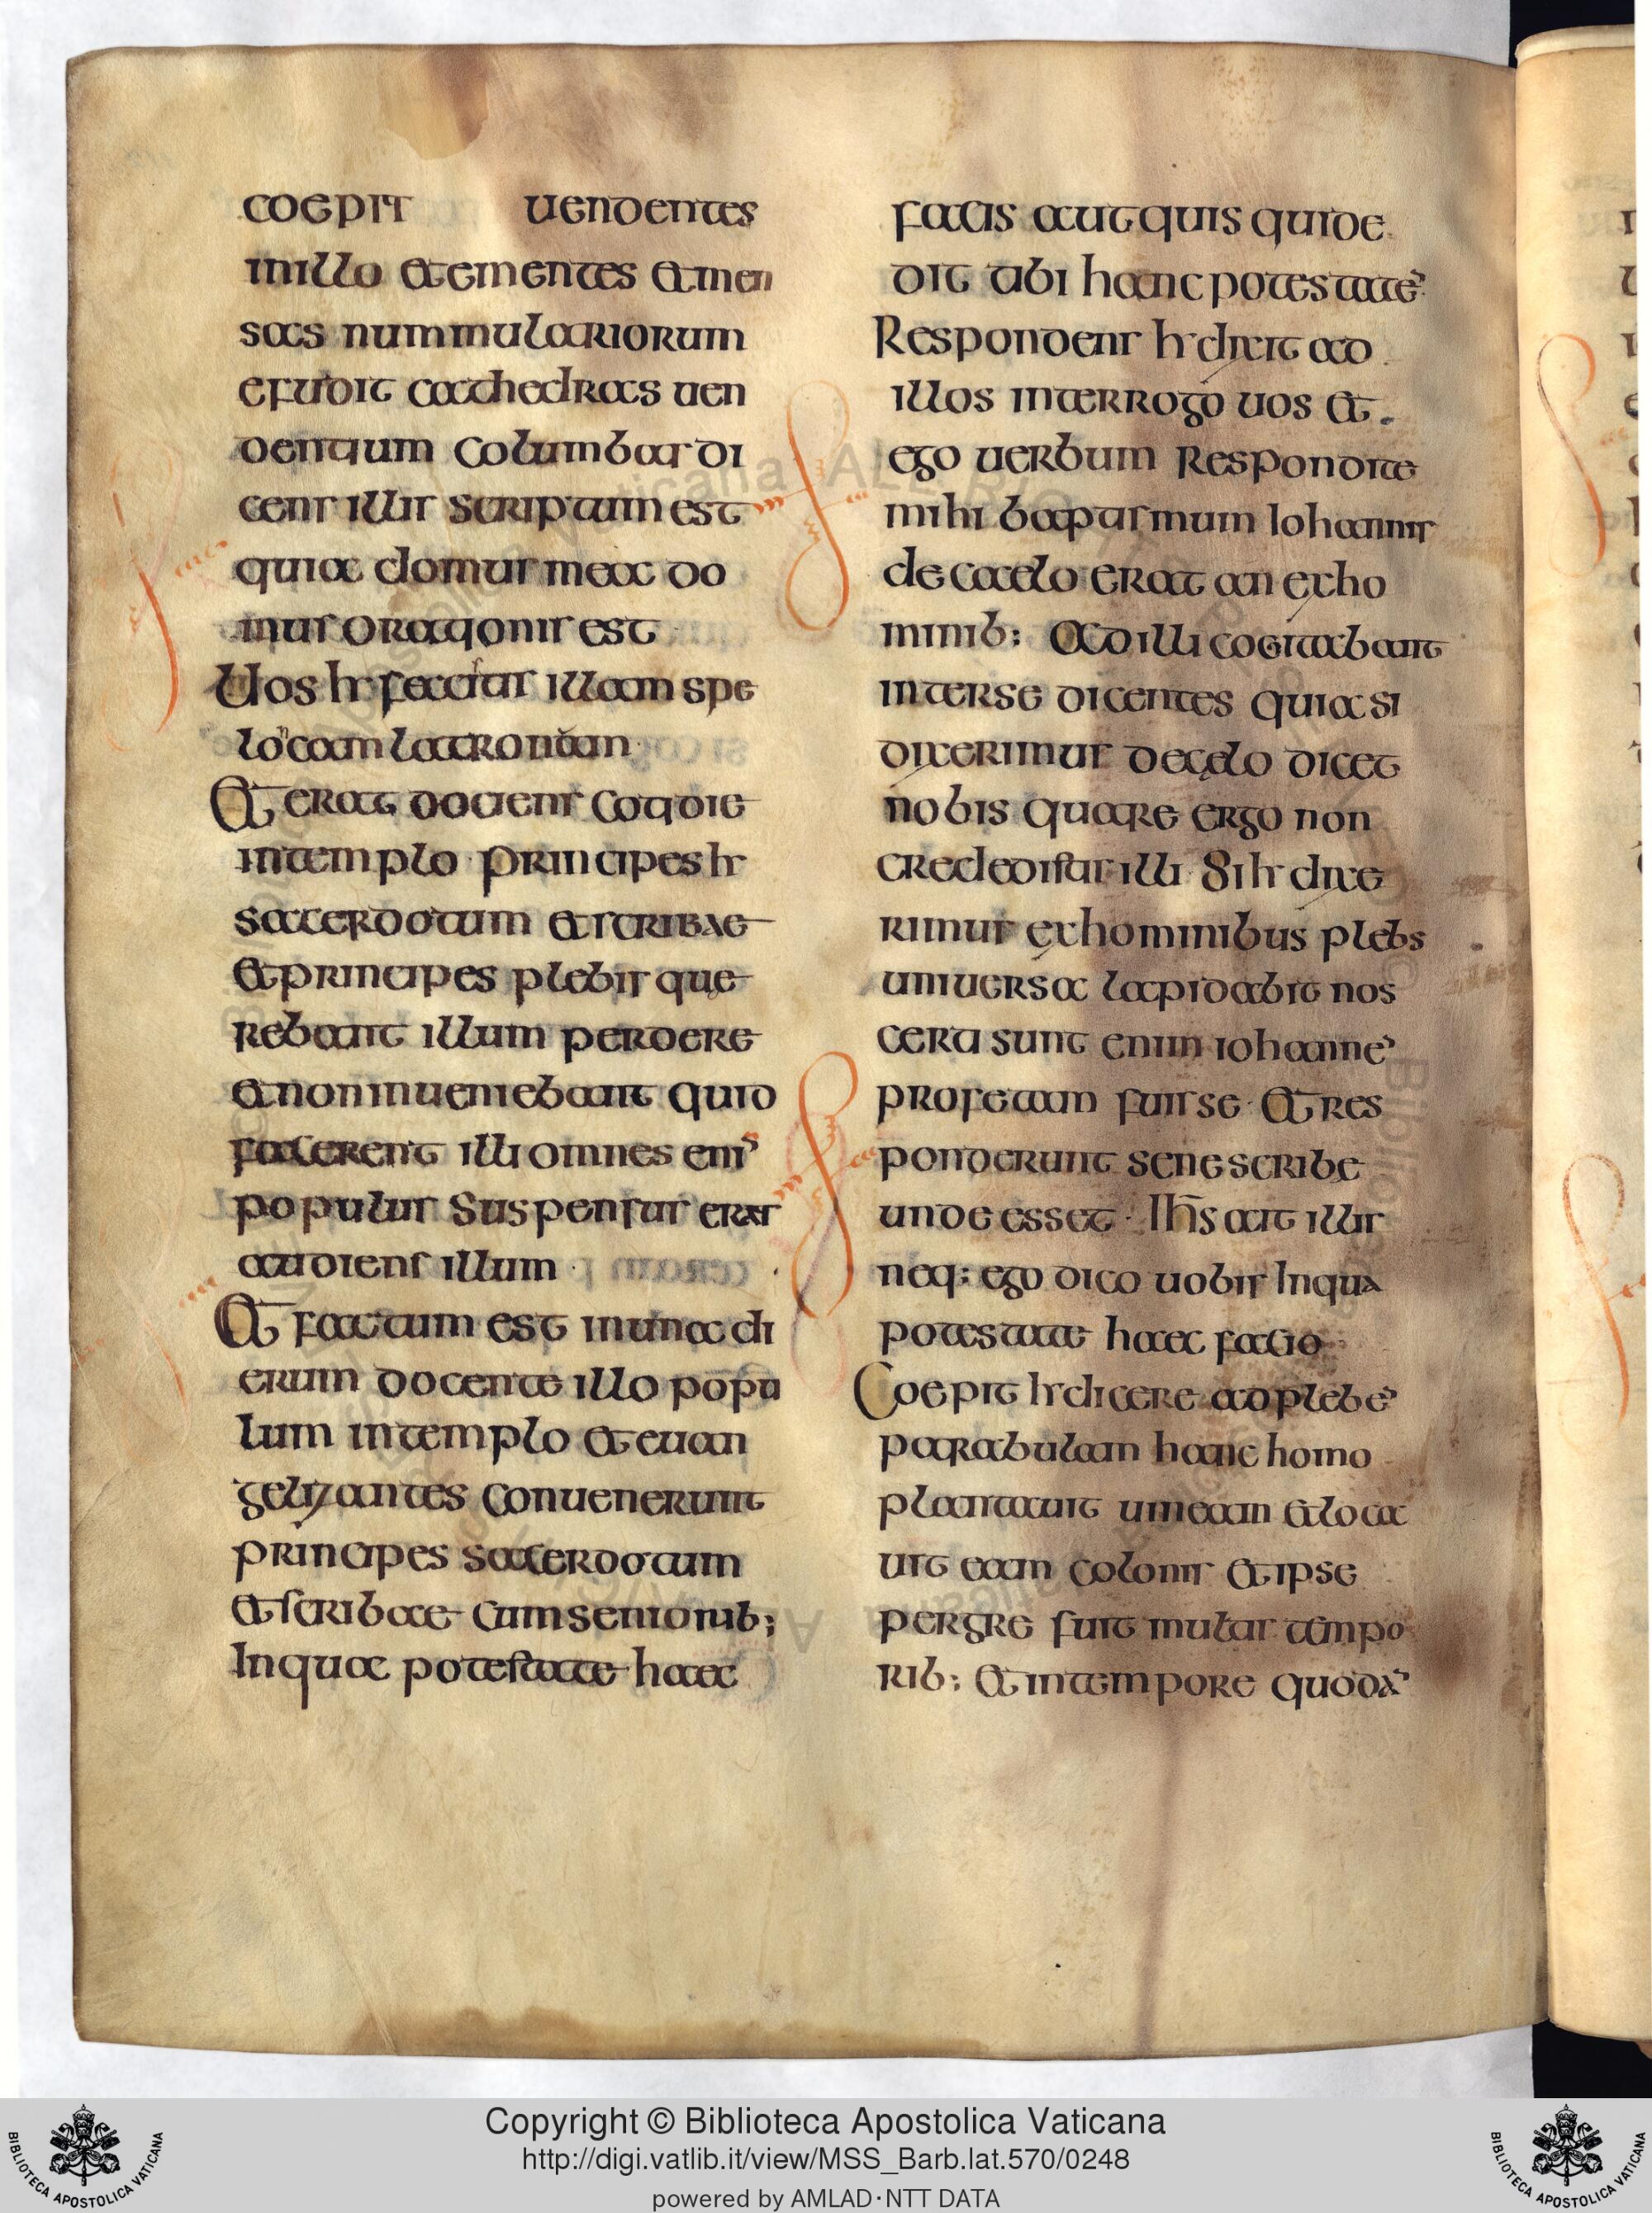 coepit uendentes
in illo et ementes et men
sas nummulariorum
efudit cathedras uen
dentium columbas di
cens illis scriptum est
quia domus mea do
mus orationis est
Uos hr fecistis illam spe
loncam latronum
Et erat docens cotidie
in templo principes hr
sacerdotum et scribae
et principes plebis que
rebant illum perdere
et non inueniebant quid
facerent illi omnes enī
populus suspensus erat
audiens illum
Et factum est in una di
erum docente illo popu
lum in templo et euan
gelizantes conuenerunt
principes sacerdotum
et scribae cum seniorib;
In qua potestate haec
facis aut quis qui de
dit tibi hanc potestatē
Respondens hr dixit ad
illos interrogo uos et
ego uerbum Respondite
mihi baptismum Iohannis
de caelo erat an ex ho
minib; Ad illi cogitabant
inter se dicentes quia si
dixerimus de celo dicet
nobis quare ergo non
credidistis illi Si hr dixe
rimus ex hominibus plebs
uniuersa lapidabit nos
certi sunt enim iohannē
profetam fuisse Et res
ponderunt se nescire
unde esset Ihs ait illis
neq; ego dico uobis In qua
potestate haec facio
Coepit hr dicere ad plebē
parabulam hanc homo
plantauit uineam et loca
uit eam colonis et ipse
pergre fuit multis tempo
rib; Et in tempore quodā
Copyright © Biblioteca Apostolica Vaticana
http://digi.vatlib.it/view/MSS_Barb.lat.570/0248
powered by AMLAD·NTT DATA
BIBLIOTECA APOSTOLICA VATICANA
BIBLIOTECA APOSTOLICA VATICANA